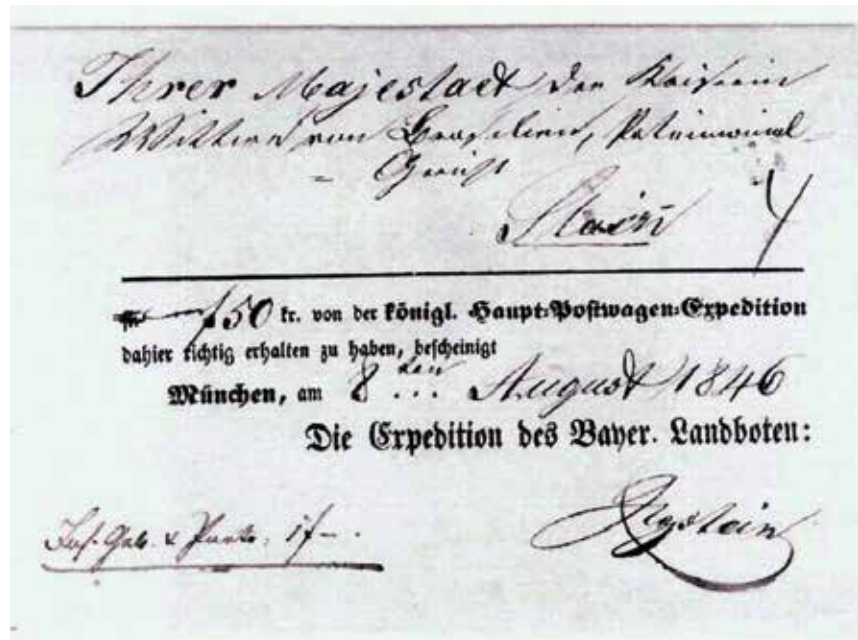 Ihrer Majestaet der Kaiserin
Wittwe von Brasilien, Patrimonial
Gericht
Stain
50 kr. von der königl. Haupt-Postwagen-Expedition
dahier richtig erhalten zu haben, bescheinigt
München, am 8 ten August 1846
Die Expedition des Bayer. Landboten:
Ins. Geb. & Porto. 1f –.